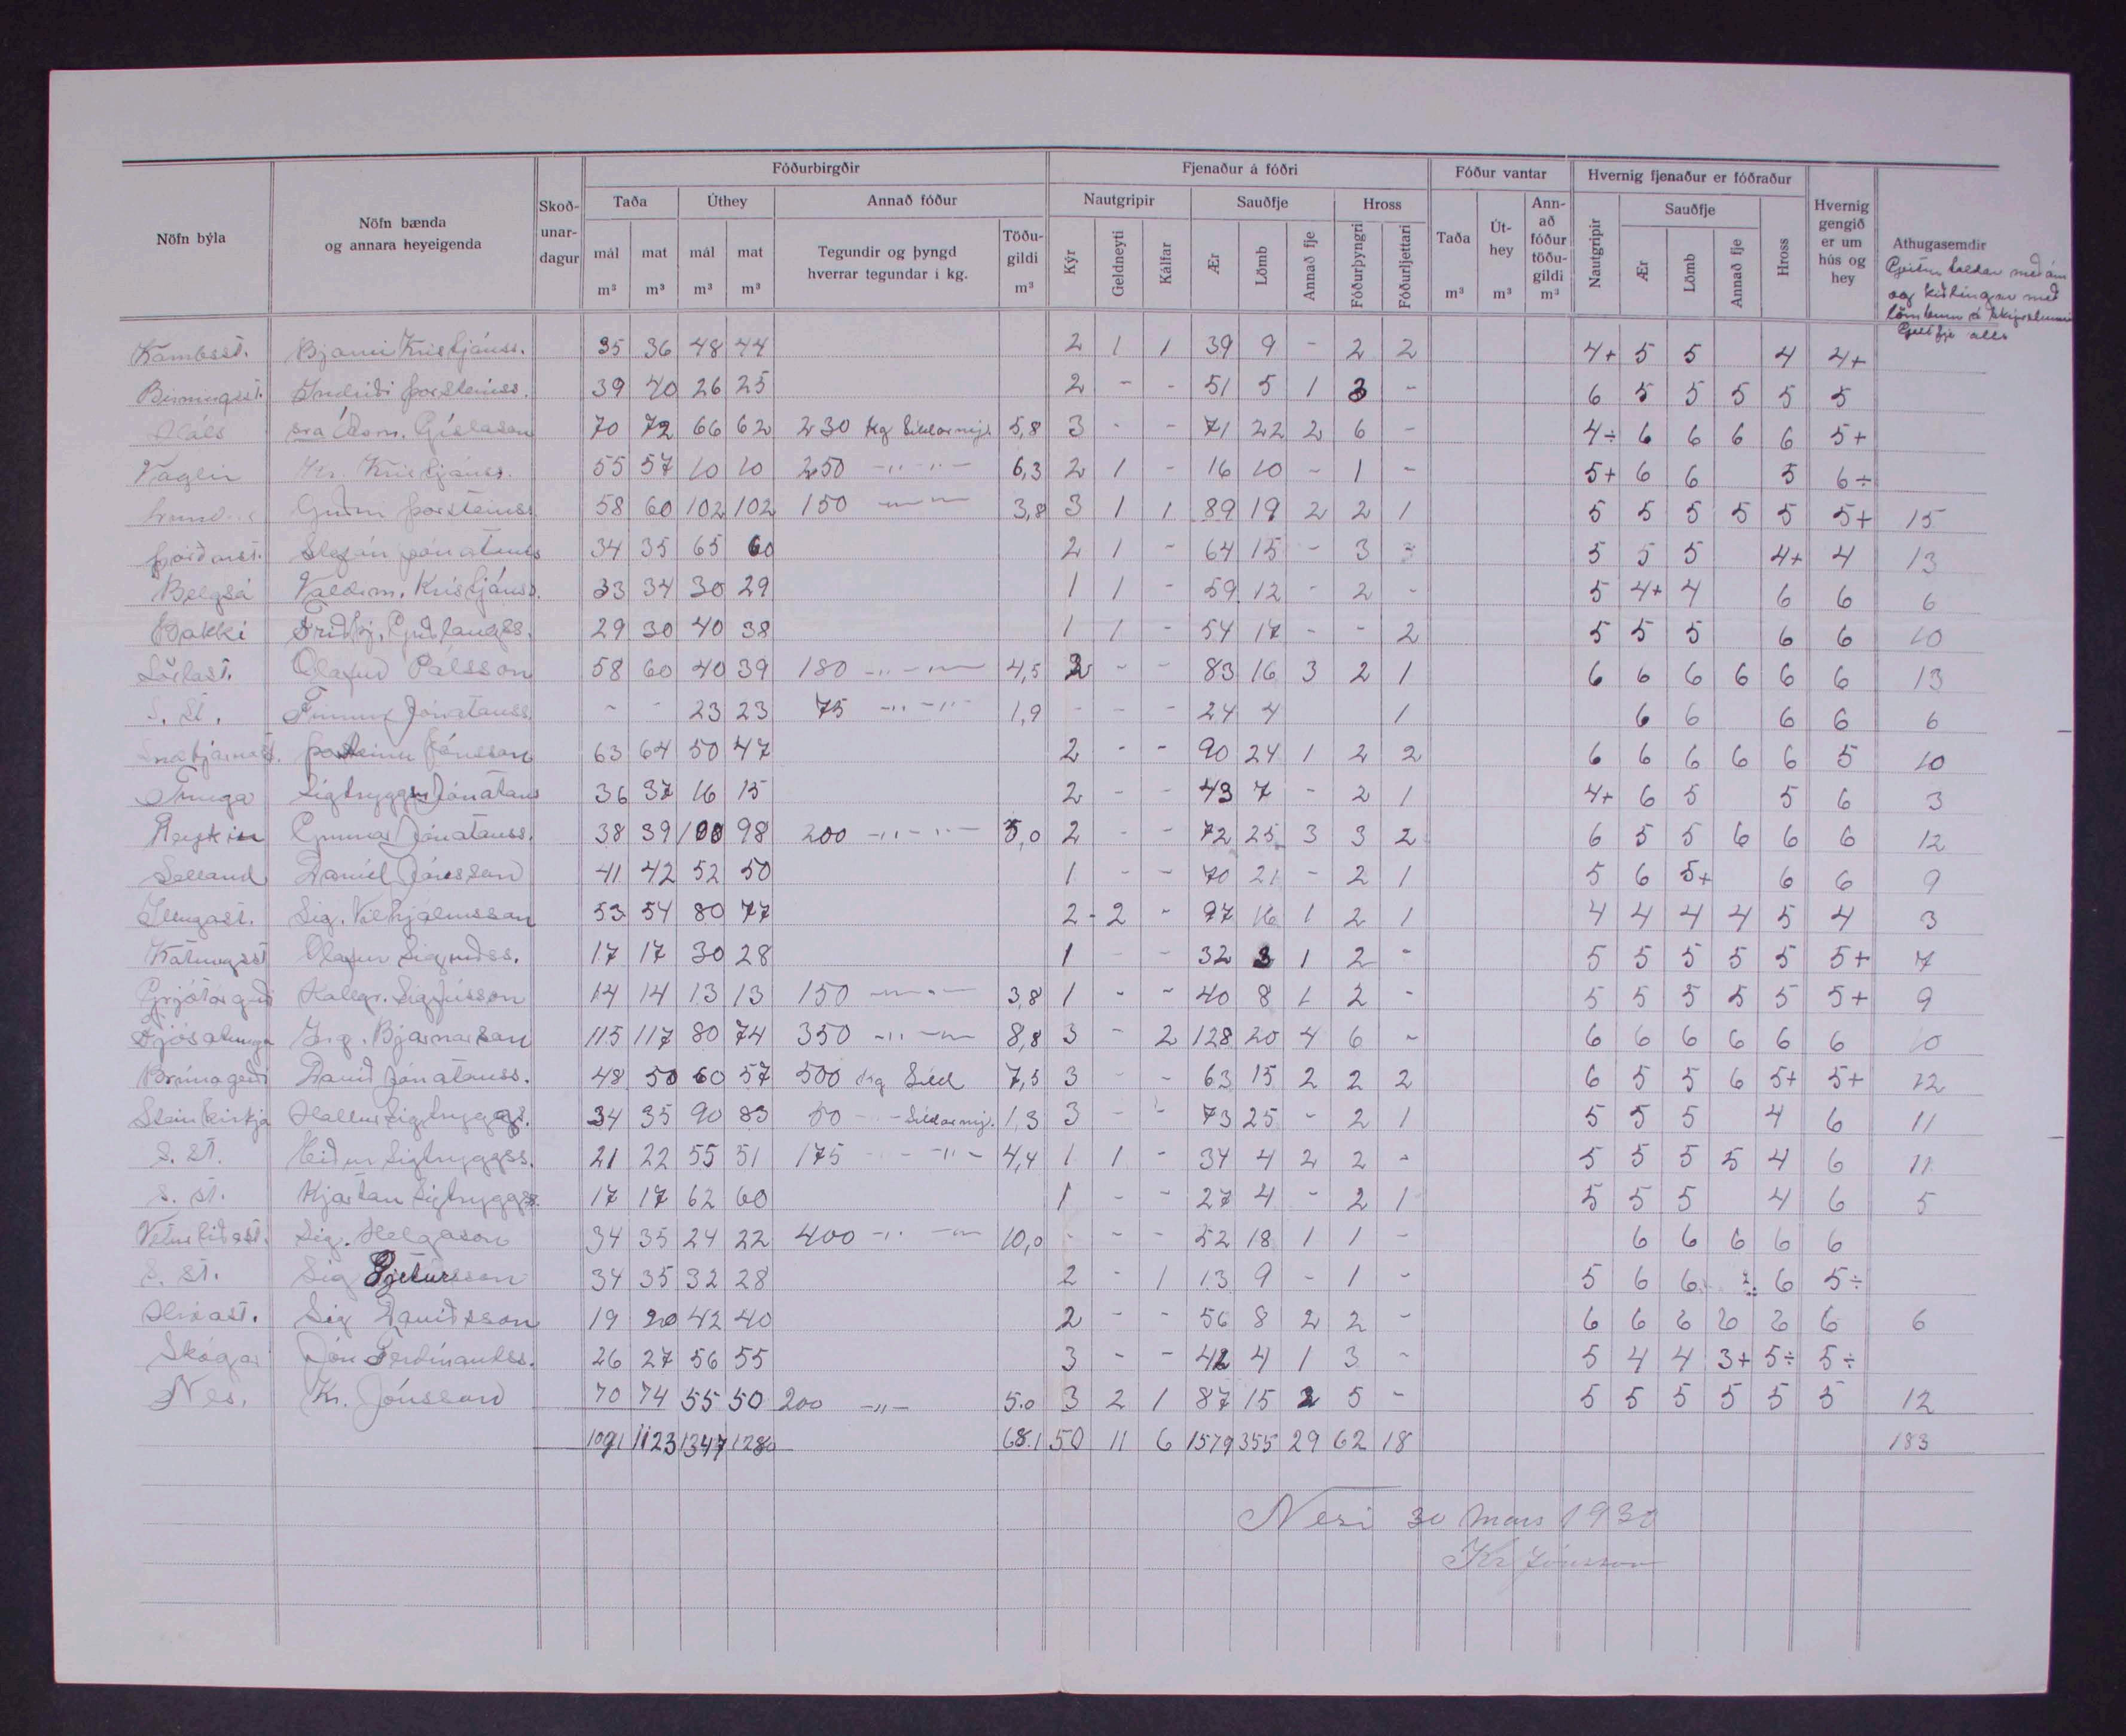 Nöfn býla
Nöfn bænda og annara heyeigenda
Skoðunardagur
Fóðurbirgðir
Taða
mál m³
mat m³
Úthey
mál m³
mat m³
Annað fóður
Tegundir og þyngd hverrar tegundar í kg.
Töðugildi m³
Fjenaður á fóðri
Nautgripir
Kýr
Geldneyti
Kálfar
Sauðfje
Ær
Lömb
Annað fje
Hross
Fóðurþyngri
Fóðurljettari
Fóður vantar
Taða m³
Úthey m³
Annað fóður töðugildi m³
Hvernig fjenaður er fóðraður
Nautgripir
Sauðfje
Ær
Lömb
Annað fje
Hross
Hvernig gengið er um hús og hey
Athugasemdir
Geitur taldar með ám
og kiðlingar með
lömbum á
Geitfje alls
Kambsst. Bjarni Kristjánss. 35 36 48 44 2 1 1 39 9 - 2 2 4+ 5 5 4 4+
Birningsst. Indriði Þorsteinss. 39 40 26 25 2 - - 51 5 1 3 - 6 5 5 5 5 5
Háls sra Ásm. Gíslason 70 72 66 62 230 kg Síldarmjöl 5,8 3 - - 71 22 2 6 - 4÷ 6 6 6 6 5+
Vaglir Kr. Kristjánss. 55 57 10 10 250 -"- -"- 6,3 2 1 - 16 10 - 1 - 5+ 6 6 5 6÷
Lund Guðm Þorsteinss 58 60 102 102 150 -"- -"- 3,8 3 1 1 89 19 2 2 1 5 5 5 5 5 5+ 15
Þórðarst. Stefán Jónatanss 34 35 65 60 2 1 - 64 15 - 3 5 5 5 4+ 4 13
Belgsá Valdim. Kristjánss. 33 34 30 29 1 1 - 59 12 - 2 - 5 4+ 4 6 6 6
Bakki Friðbj. Guðlaugss. 29 30 40 38 1 1 - 54 17 - - 2 5 5 5 6 6 10
Sörlast. Ólafur Pálsson 58 60 40 39 180 -"- -"- 4,5 2 - - 83 16 3 2 1 6 6 6 6 6 6 13
S. st. Finnur Jónatanss. - - 23 23 75 -"- -"- 1,9 - - - 24 4 1 6 6 6 6 6
Snæbjarnast. Þorsteinn Jónsson 63 64 50 47 2 - - 90 24 1 2 2 6 6 6 6 6 5 10
Tunga Sigtryggur Jónatans 36 37 16 15 2 - - 43 7 - 2 1 4+ 6 5 5 6 3
Reykir Gunnar Jónatanss. 38 39 100 98 200 -"- -"- 5,0 2 - - 72 25 3 3 2 6 5 5 6 6 6 12
Selland Daníel Jónsson 41 42 52 50 1 - - 70 21 - 2 1 5 6 5+ 6 6 9
Illugast. Sig. Vilhjálmsson 53 54 80 77 2 - 2 - 97 16 1 2 1 4 4 4 4 5 4 3
Kotungsst Ólafur Sigurðss. 17 17 30 28 1 - - 32 3 1 2 - 5 5 5 5 5 5+ 7
Grjótárgerði Hallgr. Sigfússon 14 14 13 13 150 -"- -"- 3,8 1 - - 40 8 1 2 - 5 5 5 5 5 5+ 9
Fjósatunga Ing. Bjarnarson 115 117 80 74 350 -"- -"- 8,8 3 - 2 128 20 4 6 - 6 6 6 6 6 6 10
Brúnagerði Davíð Jónatanss. 48 50 60 57 500 kg Síld 7,5 3 - - 63 15 2 2 2 6 5 5 6 5+ 5+ 12
Steinkirkja Hallur Sigtryggs. 34 35 90 83 50 - - Síldarmj. 1,3 3 - - 73 25 - 2 1 5 5 5 4 6 11
S. st. Heiður Sigtryggss. 21 22 55 51 175 - - -"- 4,4 1 1 - 34 4 2 2 - 5 5 5 5 4 6 11
S. st. Kjartan Sigtryggss. 17 17 62 60 1 - - 27 4 - 2 1 5 5 5 4 6 5
Veturliðast. Sig. Helgason 34 35 24 22 400 -"- -"- 10,0 - - - 52 18 1 1 - 6 6 6 6 6
S. st. Sig Pjetursson 34 35 32 28 2 - 1 13 9 - 1 - 5 6 6 6 5÷
Hróast. Sig Davíðsson 19 20 42 40 2 - - 56 8 2 2 - 6 6 6 6 6 6 6
Skógar Jón Ferdínantss. 26 27 56 55 3 - - 42 4 1 3 - 5 4 4 3+ 5÷ 5÷
Nes. Kr. Jónsson 70 74 55 50 200 -"- 5.0 3 2 1 87 15 2 5 - 5 5 5 5 5 5 12
1091 1123 1347 1280 68.1 50 11 6 1579 355 29 62 18 183
Nesi 30 mars 1930
Kr Jónsson